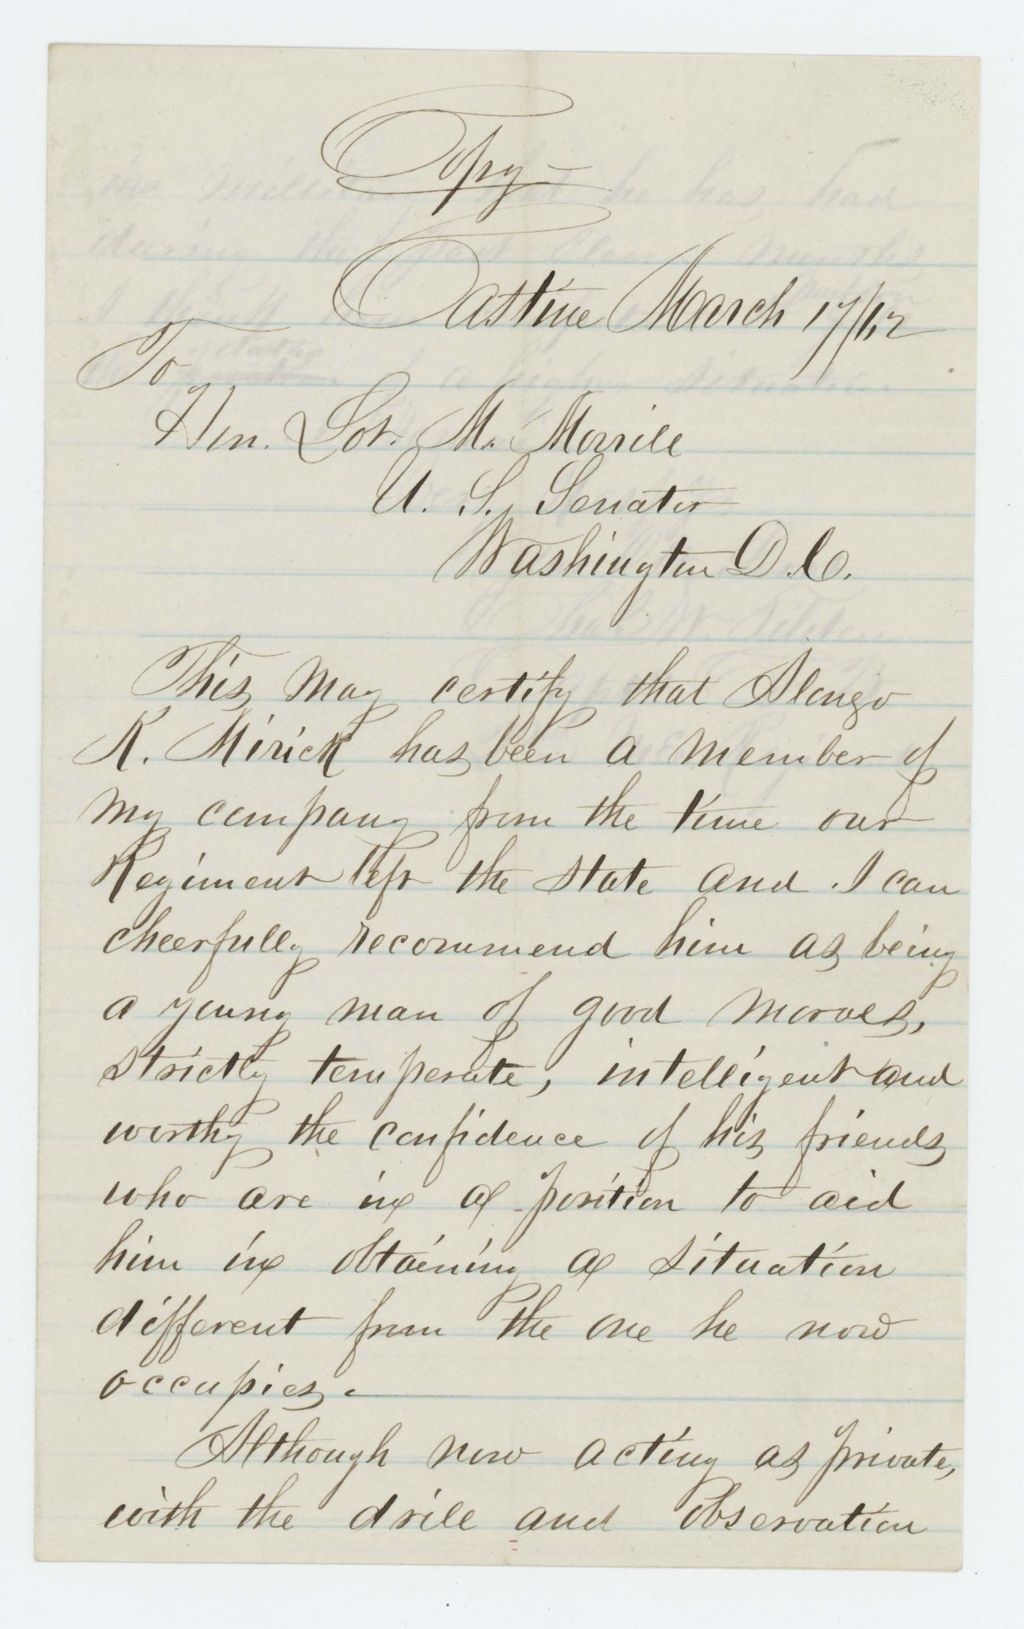 Copy
Castine March 17/62
To
Hon. Lot. M. Morrill
U. S. Senator
Washington D.C.
This may certify that Alonzo
K. Mirick has been a member of
my company from the time our
Regiment left the state and I can
cheerfully recommend him as being
a young man of good morals,
strictly temperate, intelligent and
worthy the confidence of his friends
who are in a position to aid
him in obtaining a situation
different from the one he now
occupies.
Although now acting as private,
with the drill and observation